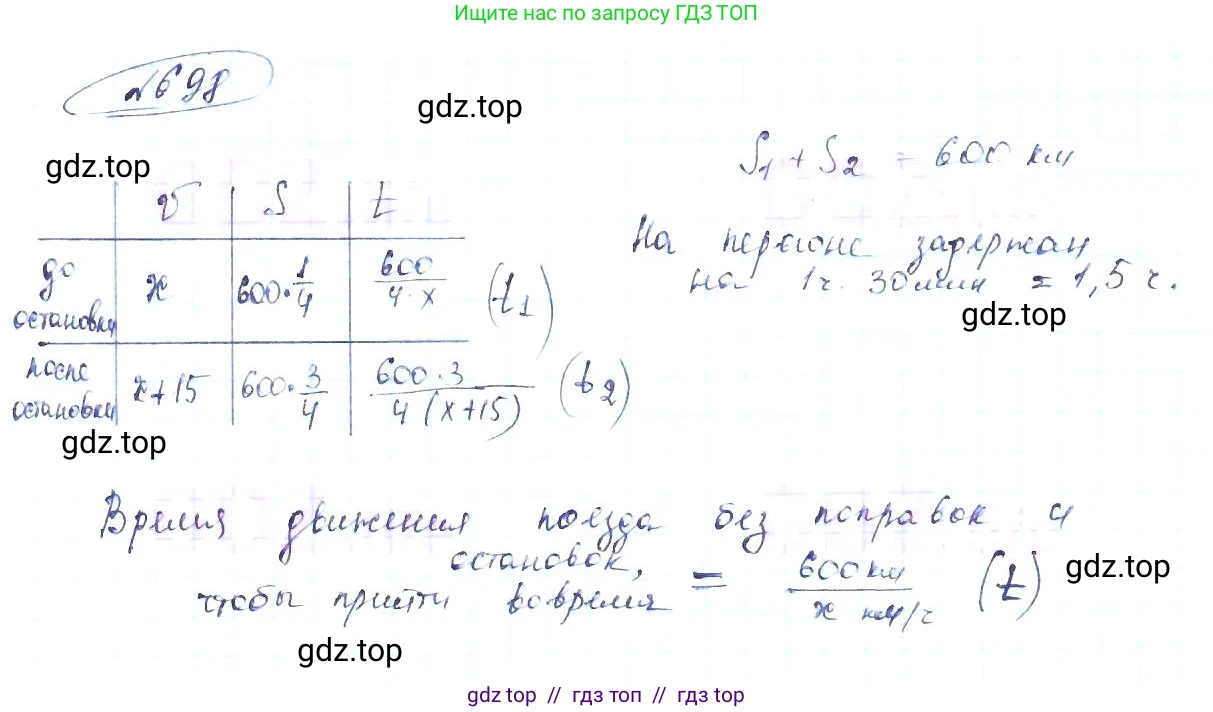 Ищите нас по запросу ГДЗ ТОП
№698
gdz.top
gdz.top
S₁ + S₂ = 600 км
v | S | t
На перегоне задержан
на 1 ч. 30 мин = 1,5 ч.
до остановки | x | 600·1/4 | 600/(4·x) (t₁)
gdz.top
после остановки | x+15 | 600·3/4 | 600·3/(4(x+15)) (t₂)
gdz.top
Время движения поезда без поправок и
остановок,
чтобы прийти вовремя = 600 км/x км/ч (t)
gdz.top
gdz.top
gdz top // гдз топ // гдз top